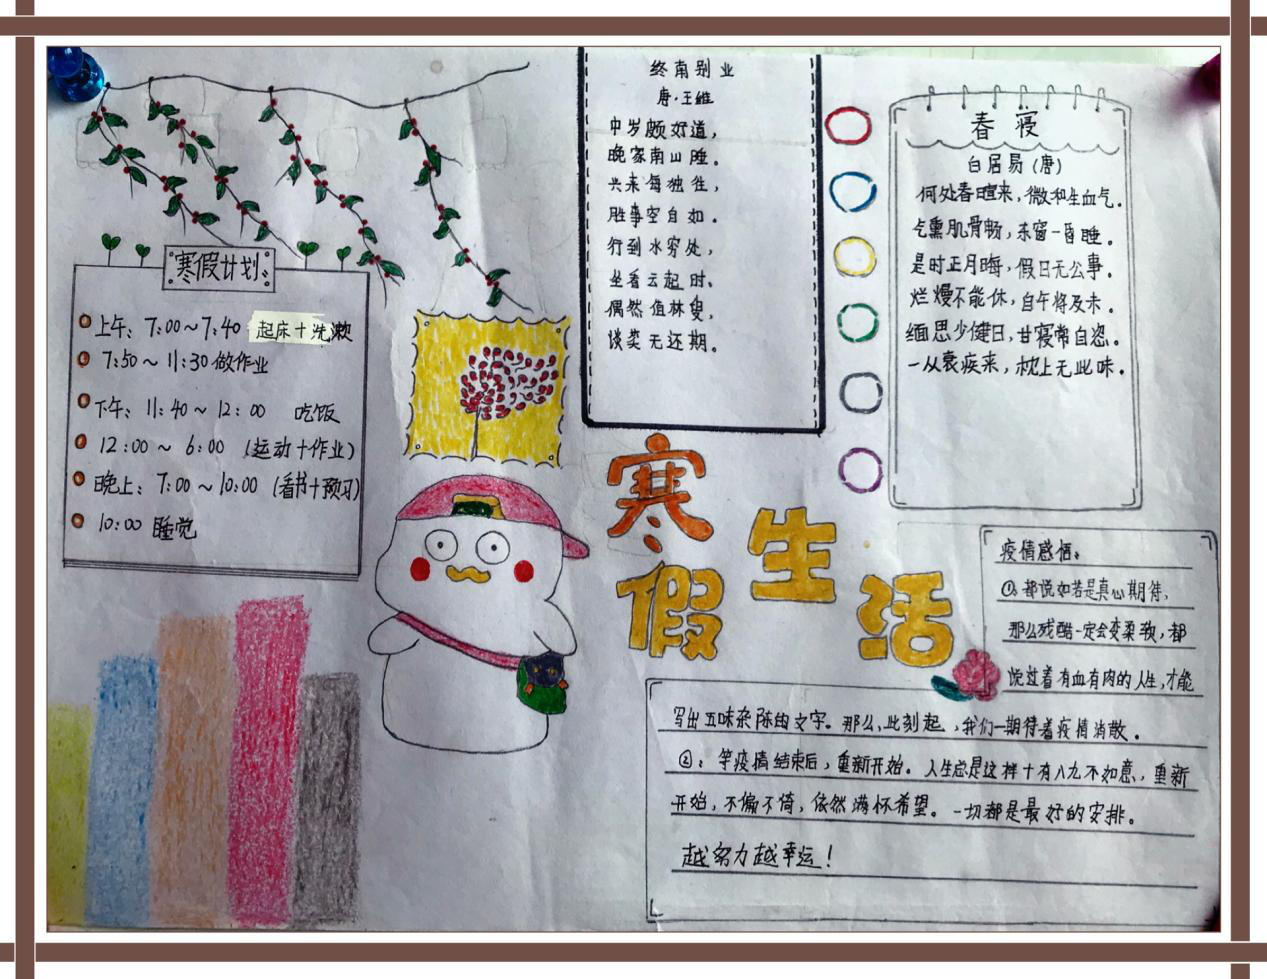 终南别业
唐·王维
中岁颇好道，
晚家南山陲。
兴来每独往，
胜事空自如。
行到水穷处，
坐看云起时。
偶然值林叟，
谈笑无还期。
春寝
白居易（唐）
何处春暄来，微和生血气。
气熏肌骨畅，东窗一昏睡。
是时正月晦，假日无公事。
烂熳不能休，自午将及未。
缅思少健日，甘寝常自恣。
一从衰疾来，枕上无此味。
寒假计划
上午：7:00~7:40 起床+洗漱
7:50~11:30做作业
下午：11:40~12:00 吃饭
12:00~6:00（运动+作业）
晚上：7:00~10:00（看书+预习）
10:00睡觉
寒假生活
疫情感悟：
①都说如若是真心期待，
那么残酷一定会变柔软，都
说过着有血有肉的人生，才能
写出五味杂陈的文字。那么，此刻起，我们一期待着疫情消散。
②：等疫情结束后，重新开始。人生总是这样十有八九不如意，重新
开始，不偏不倚，依然满怀希望。一切都是最好的安排。
越努力越幸运！